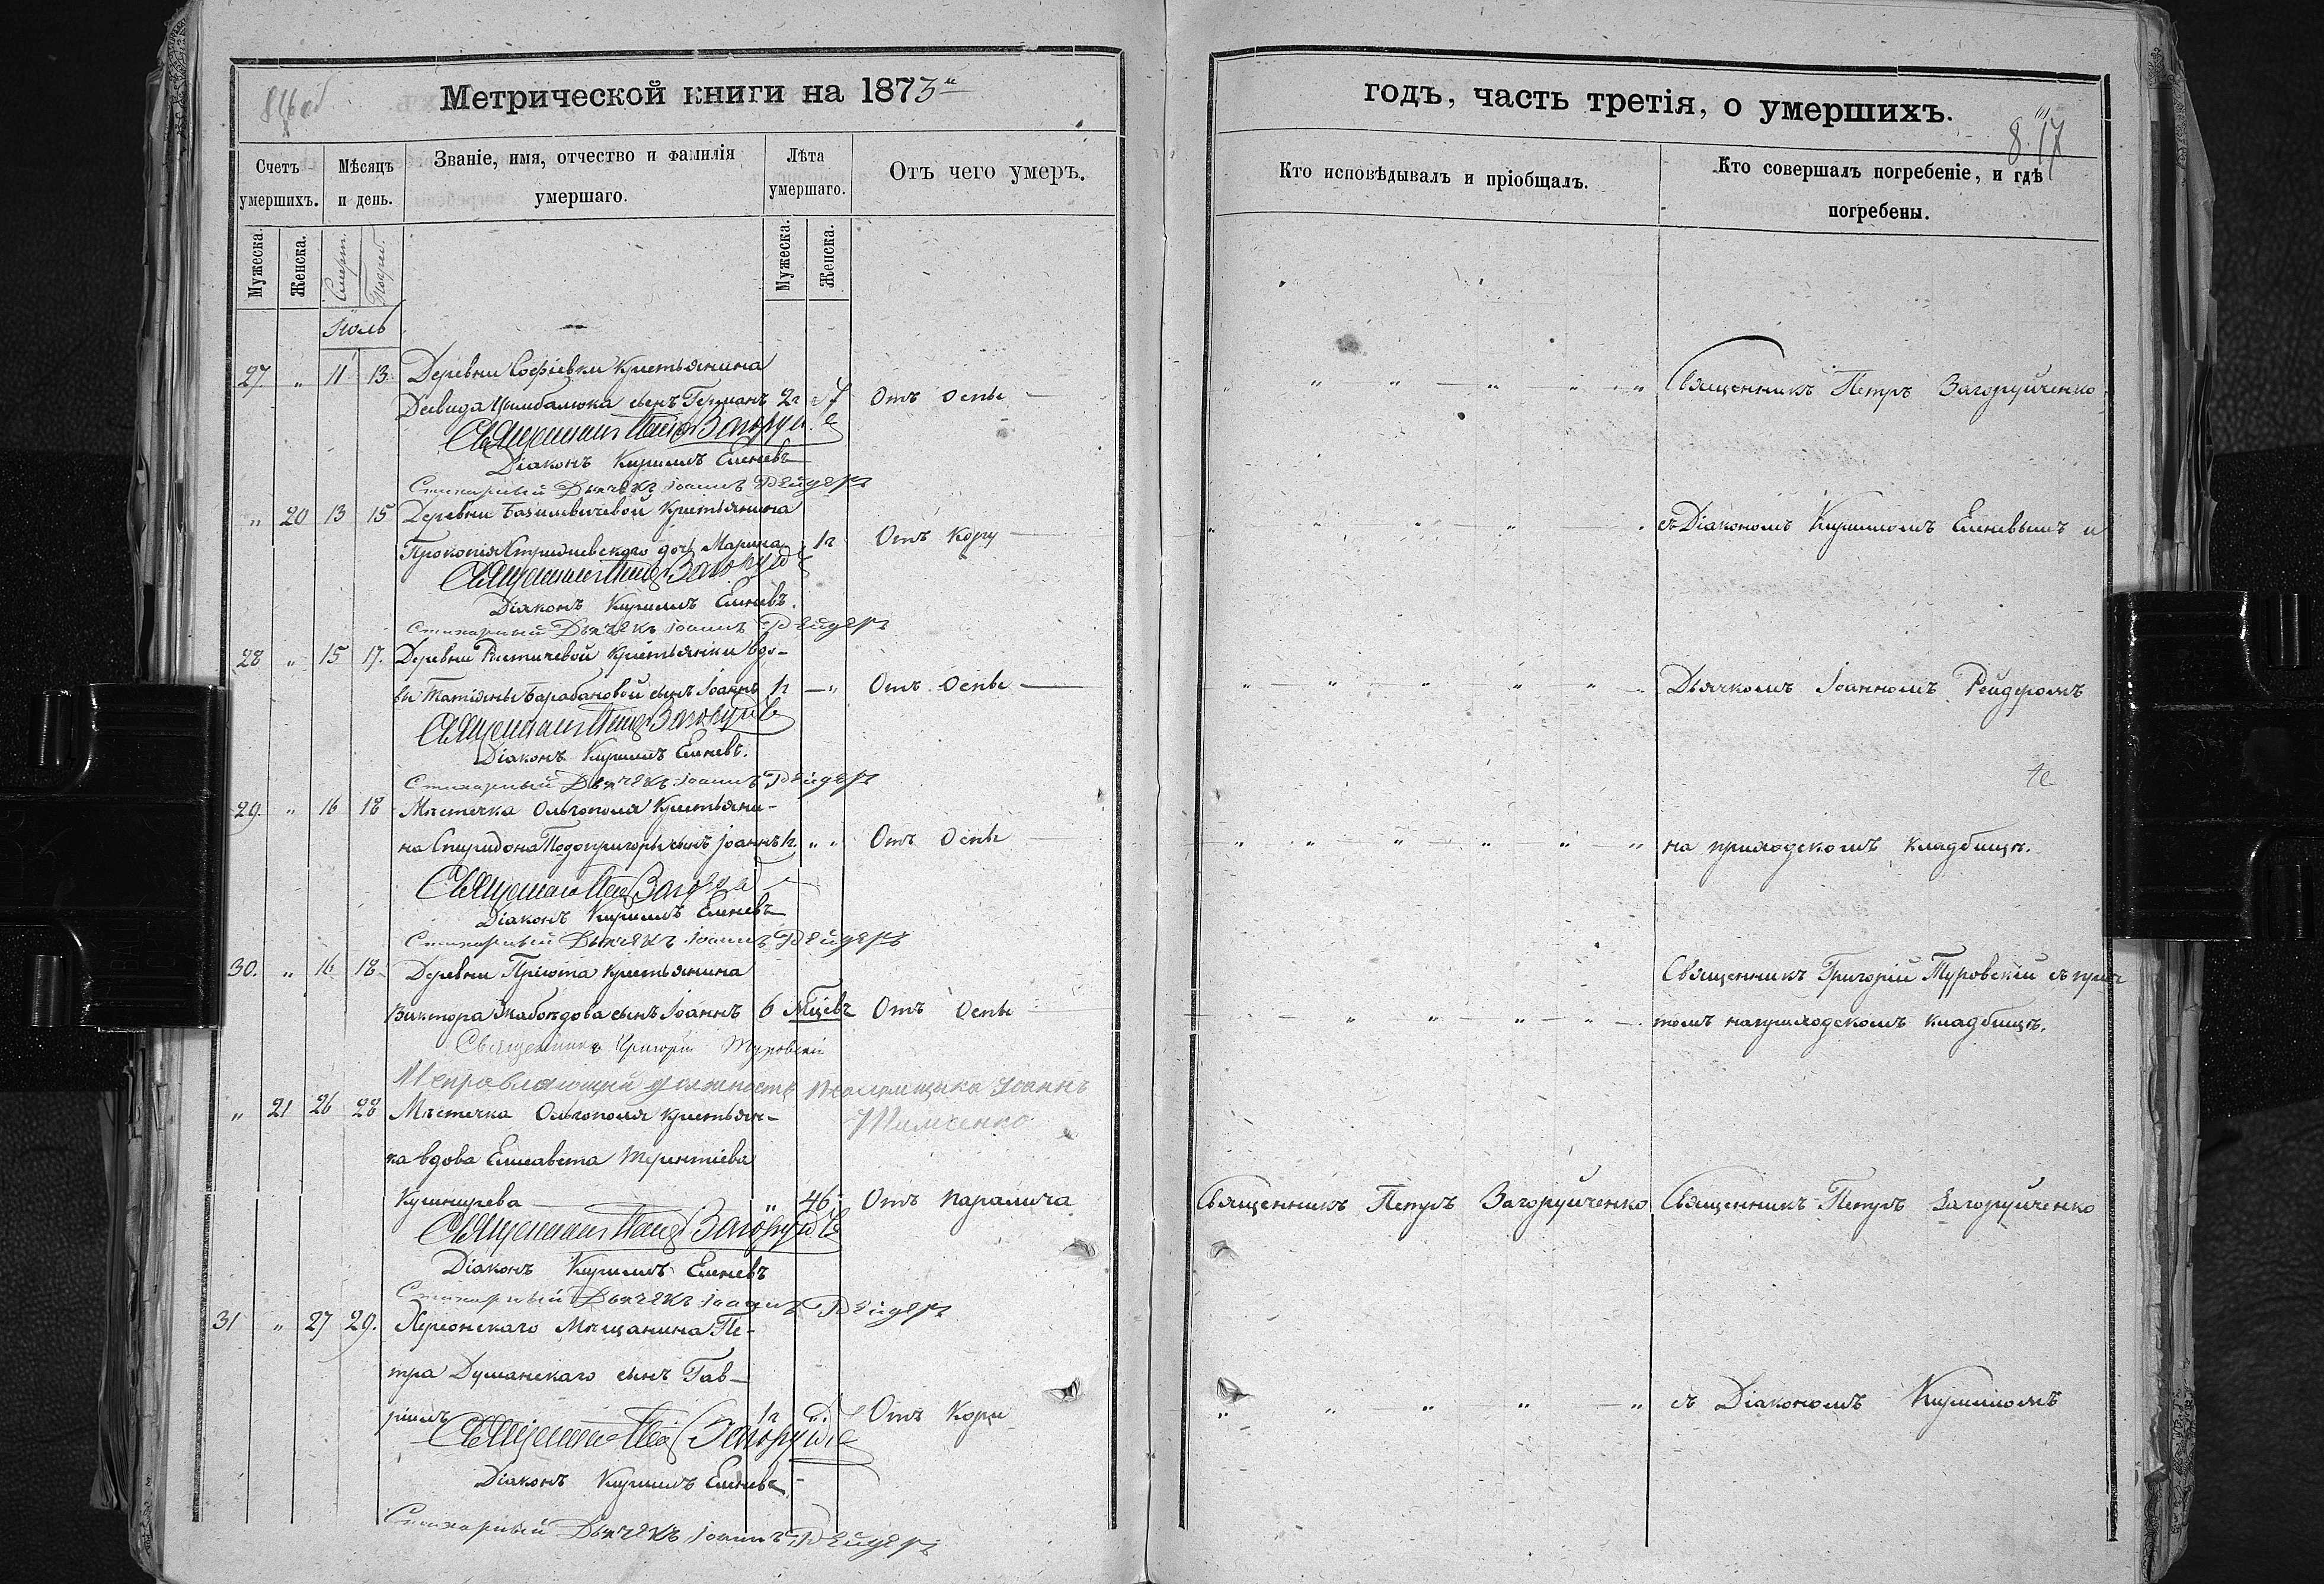 Метрической книги на 1873й
годъ, часть третія, о умершихъ.
Счетъ умершихъ.
Мѣсяцъ и день.
Званіе, имя, отчество и фамилія умершаго.
Лѣта умершаго.
Отъ чего умеръ.
Кто исповѣдывалъ и пріобщалъ.
Кто совершалъ погребеніе, и гдѣ погребены.
Мужеска.
Женска.
Смерт.
Погреб.
Мужеска.
Женска.
Іюль
27 " 11 13 Деревни Софіевки Крестьянина
Давида Цымбалюка сынъ Германъ 2г Отъ Оспы
Священникъ Петръ Загоруйченко
Священникъ
Діаконъ Кириллъ Еленевъ
Стихарный Дьячекъ Іоаннъ Рейдеръ
" 20 13 15 Деревни Базилевичевой Крестьянина
Прокопія дочь Марина 1г Отъ Кору
съ Діакономъ Кирилломъ Еленевымъ и
Священникъ
Діаконъ Кириллъ Еленевъ.
Стихарный Дьячекъ Іоаннъ Рейдеръ
28 " 15 17. Деревни Крестьянки вдо-
вы Татіяны Барабановой сынъ Іоаннъ 1г " Отъ Оспы
Дьячкомъ Іоанномъ Рейдеромъ
Священникъ
Діаконъ Кириллъ Еленевъ.
Стихарный Дьячекъ Іоаннъ Рейдеръ
29. " 16 18 Мѣстечка Ольгополя Крестьяни-
на Спиридона Подопригоры сынъ Іоаннъ 1г. " " Отъ Оспы
на приходскомъ кладбищѣ.
Священникъ
Діаконъ Кириллъ Еленевъ
Стихарный Дьячекъ Іоаннъ Рейдеръ
30. " 16 18 Деревни Пріюта крестьянина
Священникъ Григорій Туровскій съ прич
Виктора сынъ Іоаннъ 6 Мцевъ Отъ Оспы
томъ на приходскомъ кладбищѣ.
Священникъ Григорій Туровскій
Исправляющій должность Псаломщика Іоаннъ
Тимченко
" 21 26 28 Мѣстечка Ольгополя крестьян-
ка вдова Елисавета Терентіева
Кушнирева " 46 Отъ паралича
Священникъ Петръ Загоруйченко
Священникъ Петръ Загоруйченко
Священникъ
Діаконъ Кириллъ Еленевъ
Стихарный Дьячекъ Іоаннъ Рейдеръ
31 " 27 29. Херсонскаго Мѣщанина Пе-
тра Думанскаго сынъ Гав-
ріилъ 1г Отъ Кори
съ Діакономъ Кирилломъ
Священникъ
Діаконъ Кириллъ Еленевъ
Стихарный Дьячекъ Іоаннъ Рейдеръ